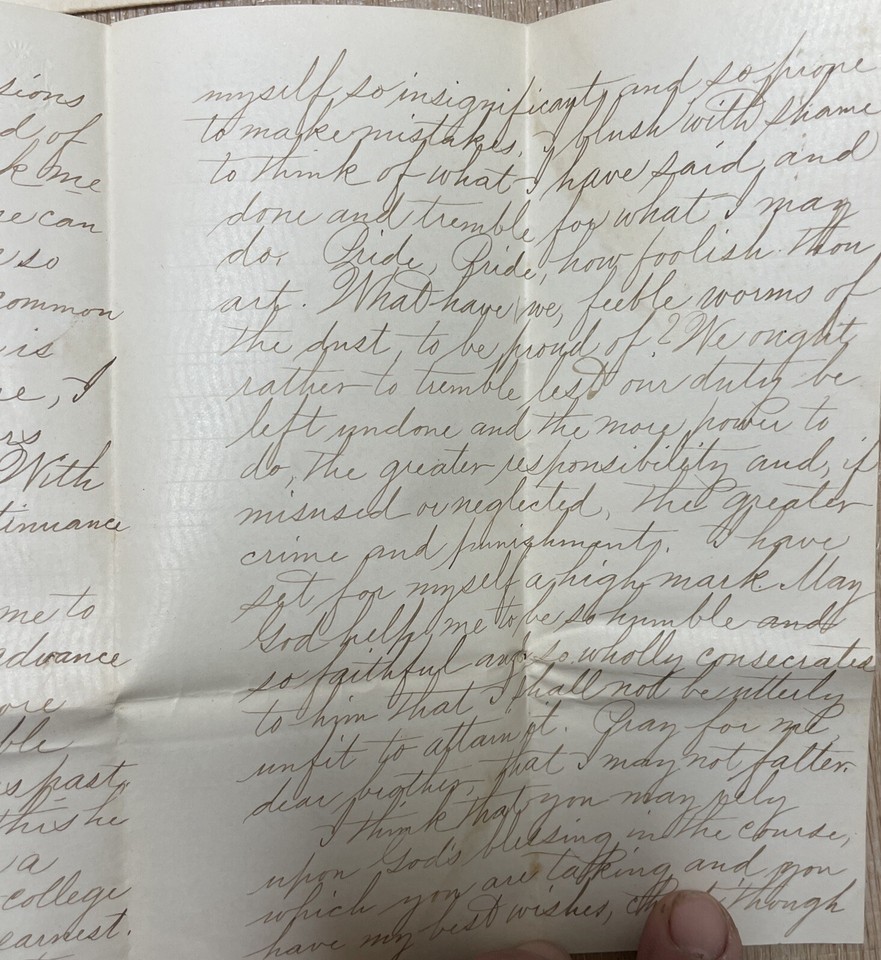 sions
d of
k me
se can
so
common
is
ce, I
rs
With
tinuance
me to
advance
ore
ble
s past
this he
a
college
earnest.
myself so insignificant, and so prone
to make mistakes. I blush with shame
to think of what I have said, and
done and tremble for what I may
do. Pride, Pride, how foolish thou
art. What have we, feeble worms of
the dust, to be proud of? We ought
rather to tremble lest our duty be
left undone and the more power to
do, the greater responsibility and, if
misused or neglected, the greater
crime and punishments. I have
set for myself a high mark. May
God help me to be so humble and
so faithful and so wholly consecrates
to him that I shall not be utterly
unfit to attain it. Pray for me,
dear brother, that I may not falter.
I think that you may rely
upon God's blessing in the course,
which you are taking and you
have my best wishes, though